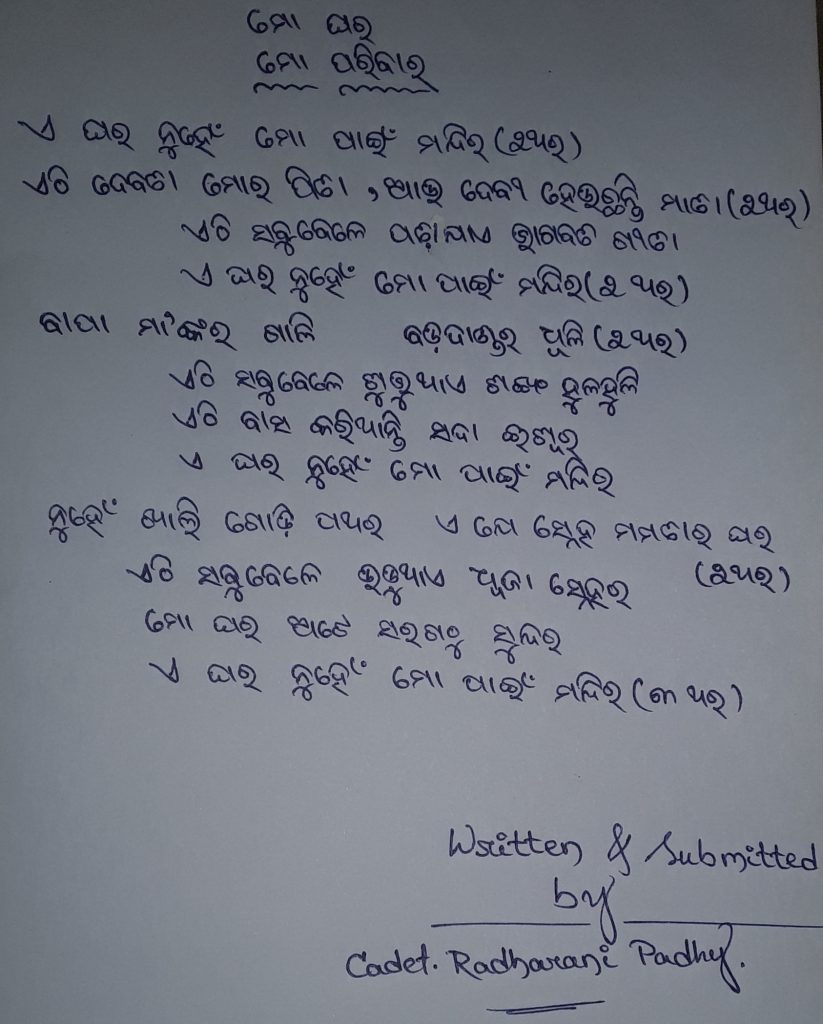 ମୋ ଘର
ମୋ ପରିବାର
ଏ ଘର ନୁହେଁ ମୋ ପାଇଁ ମନ୍ଦିର (୨ଥର)
ଏଠି ଦେବତା ମୋର ପିତା , ଆଉ ଦେବୀ ହେଉଛନ୍ତି ମାତା (୨ଥର)
ଏଠି ସବୁବେଳେ ପଢ଼ାଯାଏ ଭାଗବତ ଗୀତା
ଏ ଘର ନୁହେଁ ମୋ ପାଇଁ ମନ୍ଦିର (୨ ଥର)
ବାପା ମା'ଙ୍କର ଗାଳି ବଡ଼ଦାଣ୍ଡର ଧୂଳି (୨ଥର)
ଏଠି ସବୁବେଳେ ଶୁଭୁଥାଏ ଶଙ୍ଖ ହୁଳହୁଳି
ଏଠି ବାସ କରିଥାନ୍ତି ସଦା ଇଶ୍ୱର
ଏ ଘର ନୁହେଁ ମୋ ପାଇଁ ମନ୍ଦିର
ନୁହେଁ ଖାଲି ଗୋଡ଼ି ପଥର ଏ ଯେ ସ୍ନେହ ମମତାର ଘର
ଏଠି ସବୁବେଳେ ଉଡୁଥାଏ ଧ୍ୱଜା ସ୍ନେହର (୨ଥର)
ମୋ ଘର ଅଟେ ସରଗଠୁ ସୁନ୍ଦର
ଏ ଘର ନୁହେଁ ମୋ ପାଇଁ ମନ୍ଦିର (୩ ଥର)
Written & Submitted
by
Cadet. Radharani Padhy.